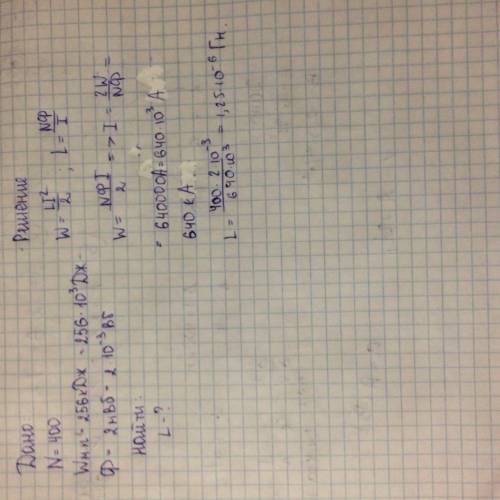 Дано
N = 400
Wм.п = 256кДж = 256·10³Дж
Ф = 2мВб = 2·10⁻³Вб
Найти:
L - ?
Решение
W = LI²/2 ; L = NФ/I
W = NФI/2 => I = 2W/NФ =
= 640000А = 640·10³ А
640 кА
L = 400·2·10⁻³/640·10³ = 1,25·10⁻⁶ Гн.